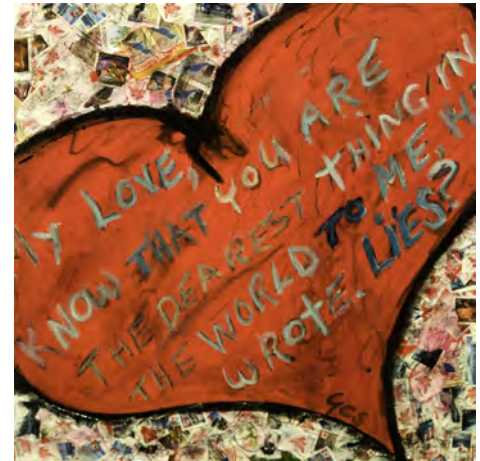 My LOVE,
KNOW THAT YOU ARE
THE DEAREST THING IN
THE WORLD TO ME, HE
WROTE. LIES?
yes